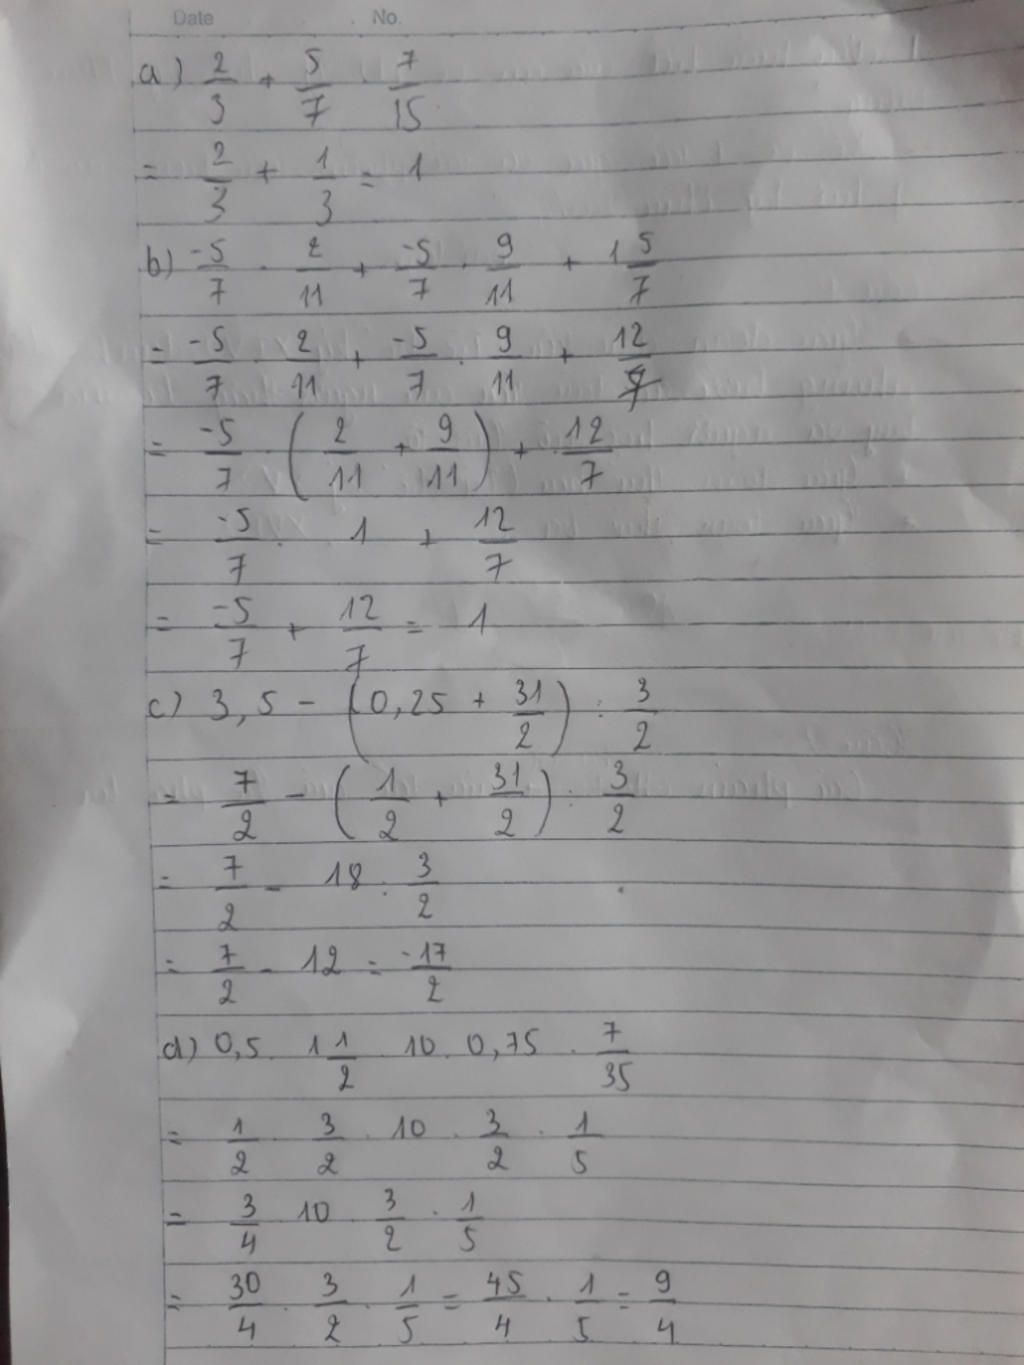 Date No.
a) 2/3 + 5/7 . 7/15
= 2/3 + 1/3 = 1
b) -5/7 . 2/11 + -5/7 . 9/11 + 1 5/7
= -5/7 . 2/11 + -5/7 . 9/11 + 12/7
= -5/7 . (2/11 + 9/11) + 12/7
= -5/7 . 1 + 12/7
= -5/7 + 12/7 = 1
c) 3,5 - (0,25 + 31/2) : 3/2
= 7/2 - (1/2 + 31/2) : 3/2
= 7/2 - 18 : 3/2
= 7/2 - 12 = -17/2
d) 0,5 . 1 1/2 . 10 . 0,75 . 7/35
= 1/2 . 3/2 . 10 . 3/2 . 1/5
= 3/4 . 10 . 3/2 . 1/5
= 30/4 . 3/2 . 1/5 = 45/4 . 1/5 = 9/4